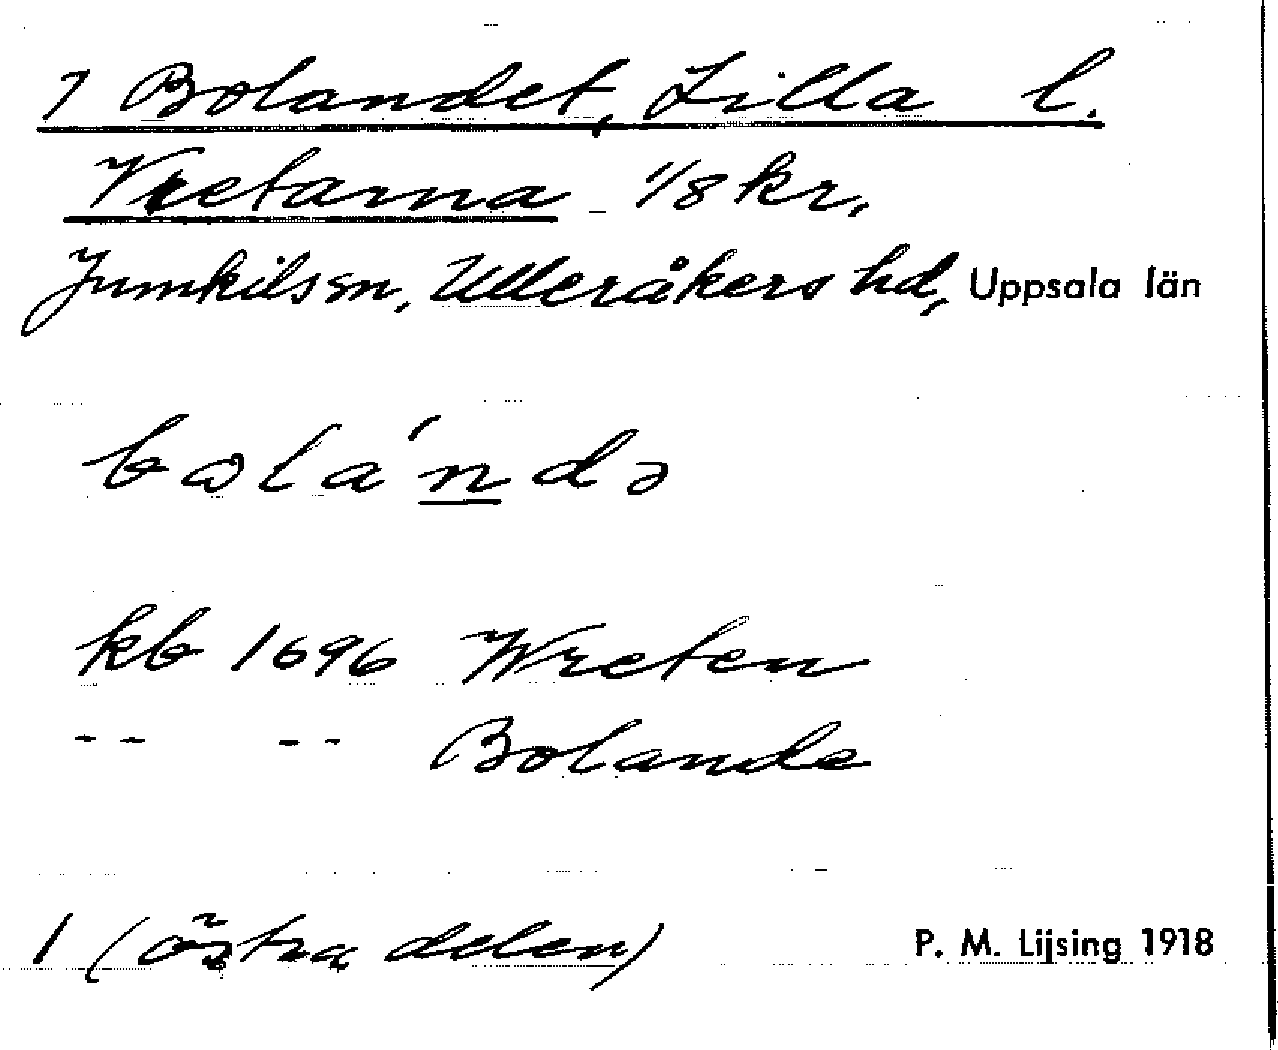 7 Bolandet, Lilla l.
Vretarna 1/8 kr,
Jumkils sn, Ulleråkers hd, Uppsala län
bωla´ndə
kb 1696 Wreten
-- -- Bolande
1 (östra delen) P. M. Lijsing 1918